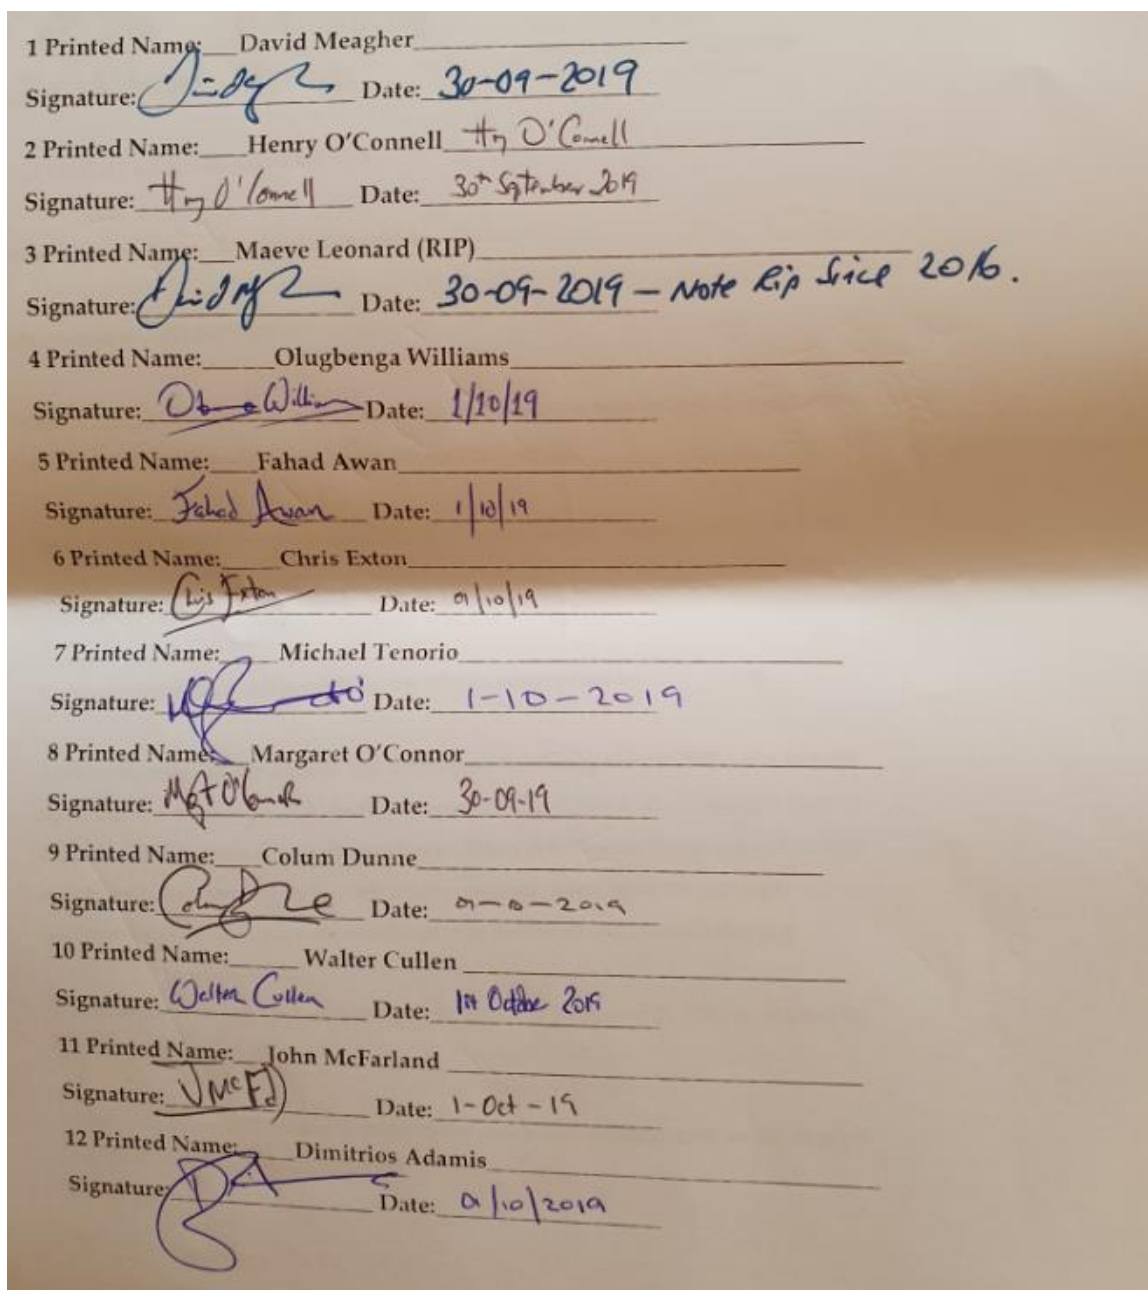 1 Printed Name:___David Meagher
Signature: Date: 30-09-2019
2 Printed Name:____Henry O'Connell Hy O'Connell
Signature: Hy O'Connell Date: 30th September 2019
3 Printed Name:___Maeve Leonard (RIP)
Signature: Date: 30-09-2019 – Note Rip Since 2016.
4 Printed Name:______Olugbenga Williams
Signature: Williams Date: 1/10/19
5 Printed Name:____Fahad Awan
Signature: Fahad Awan Date: 1/10/19
6 Printed Name:_____Chris Exton
Signature: Chris Exton Date: 01/10/19
7 Printed Name:_____Michael Tenorio
Signature: Date: 1-10-2019
8 Printed Name:___Margaret O'Connor
Signature: Mgt O'Connor Date: 30-09-19
9 Printed Name:____Colum Dunne
Signature: Date: 2019
10 Printed Name:______Walter Cullen
Signature: Walter Cullen Date: 1st October 2019
11 Printed Name:___John McFarland
Signature: JMcFd Date: 1-Oct-19
12 Printed Name:_____Dimitrios Adamis
Signature: DA Date: 01/10/2019